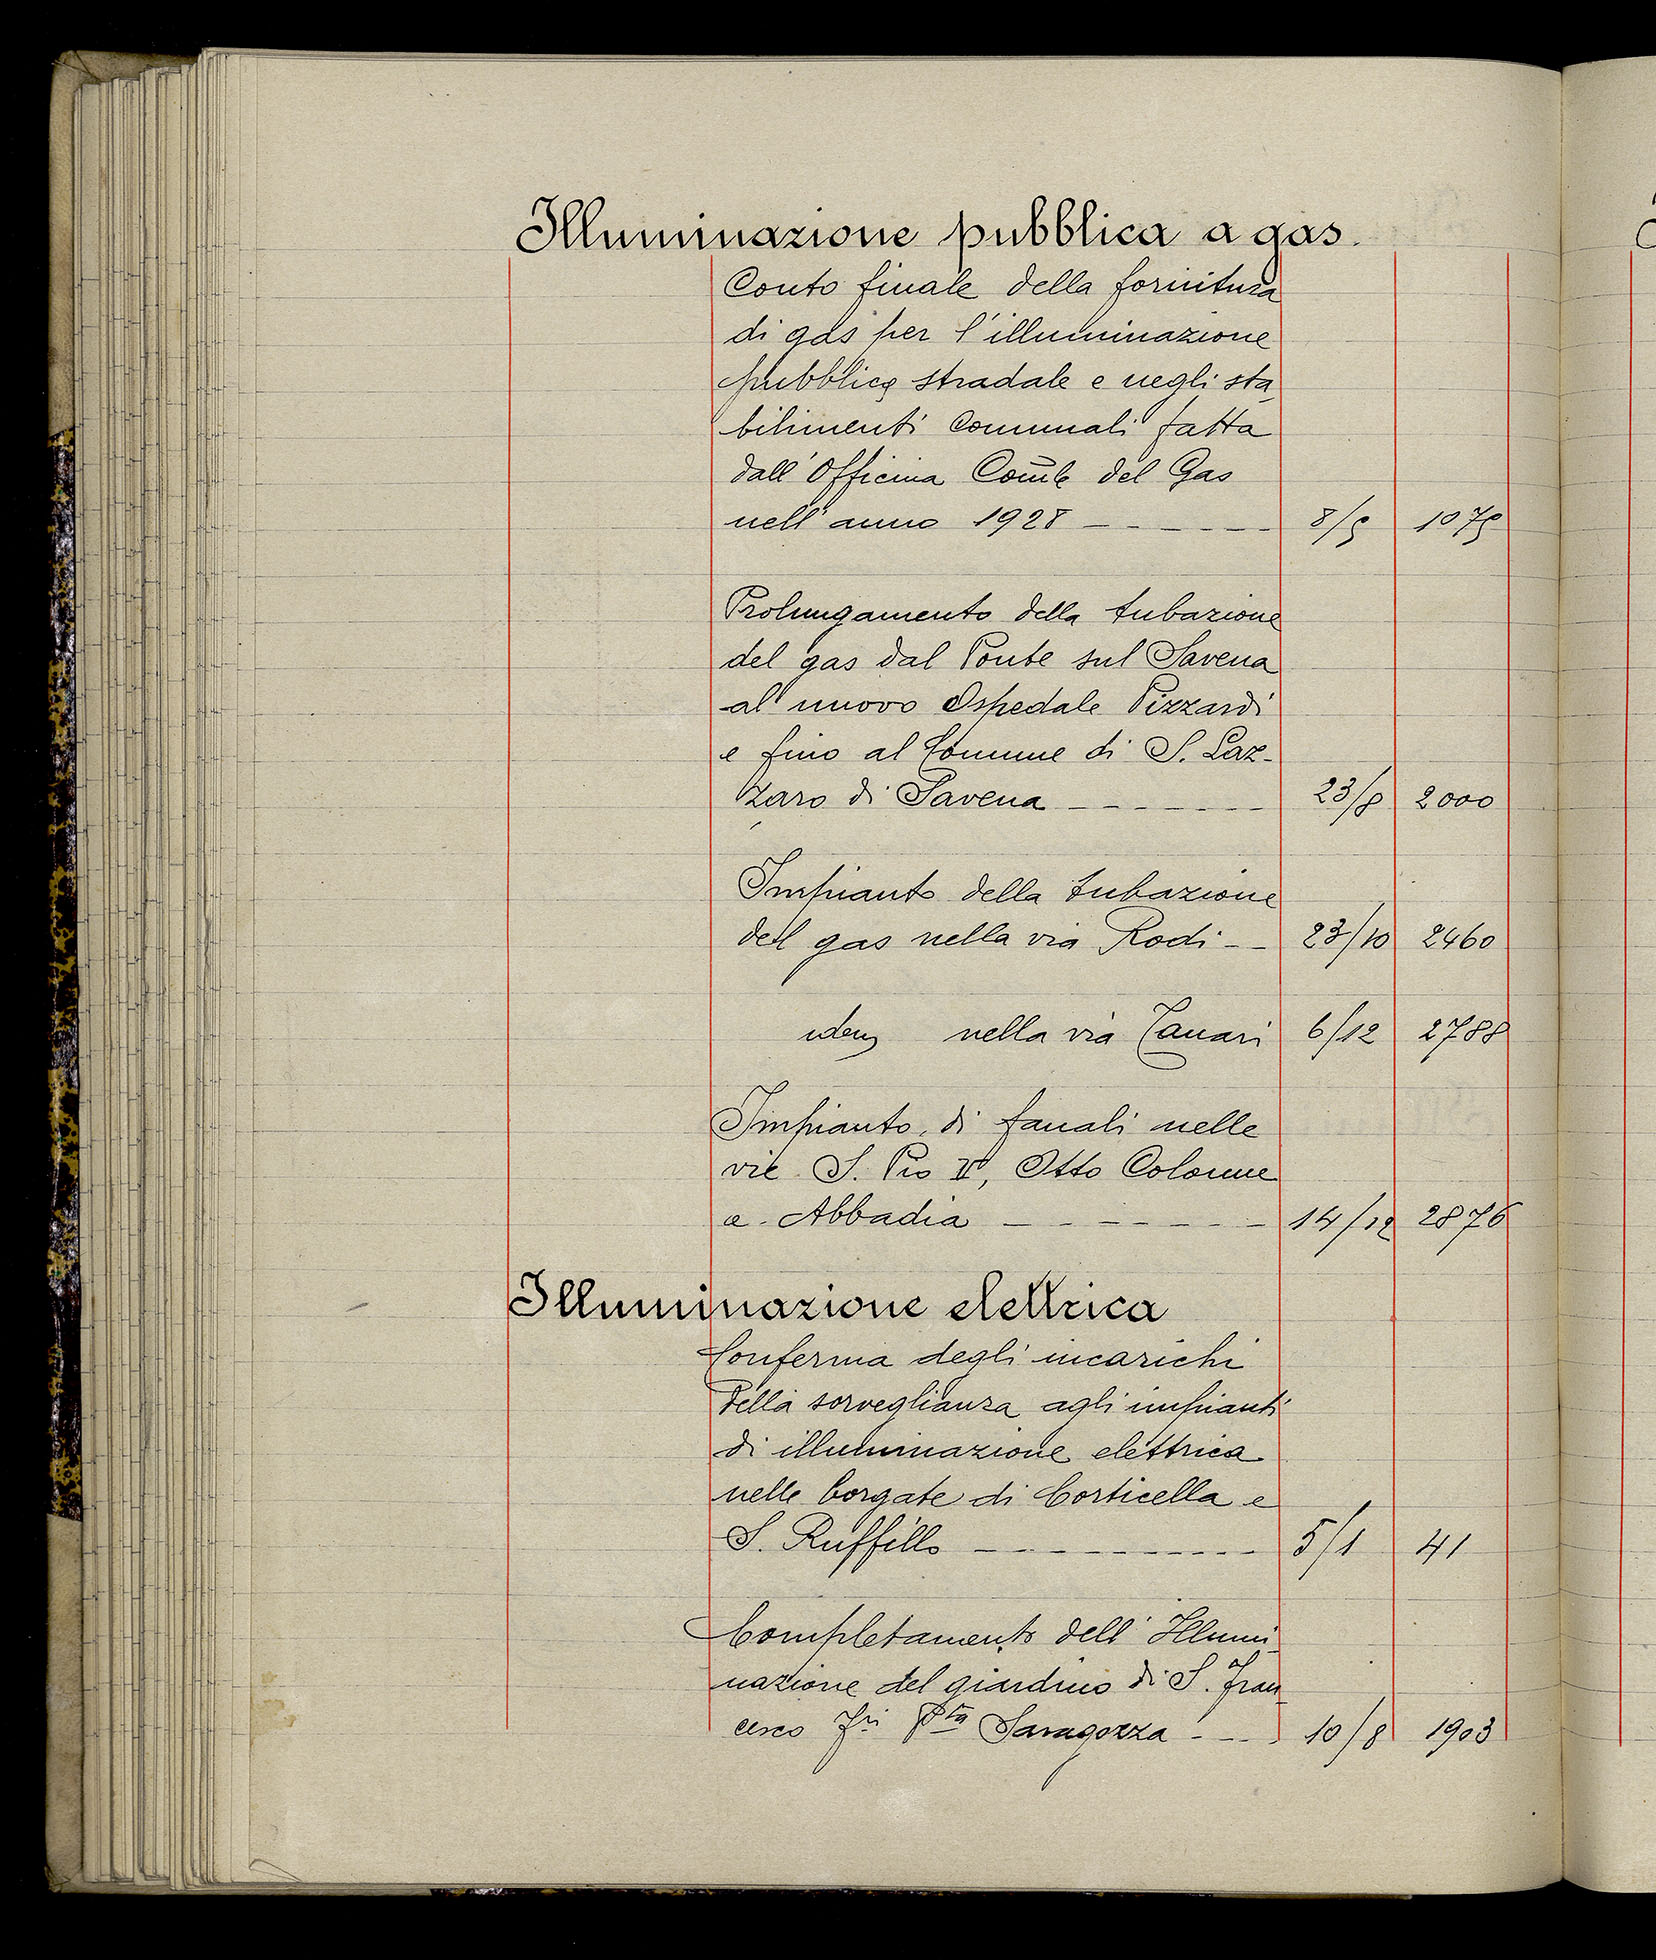 Illuminazione pubblica a gas.
Conto finale della fornitura
di gas per l'illuminazione
pubblica stradale e negli sta
bilimenti Comunali fatta
dall'Officina Comle del Gas
nell'anno 1928 - - - - - - 8/5 1075
Prolungamento della tubazione
del gas dal Ponte sul Savena
al nuovo Ospedale Pizzardi
e fino al Comune di S. Laz-
zaro di Savena - - - - - - - 23/8 2000
Impianto della tubazione
del gas nella via Rodi - - 23/10 2460
idem nella via Tanari 6/12 2788
Impianto di fanali nelle
vie S. Pio V, Otto Colonne
e Abbadia - - - - - - - 14/12 2876
Illuminazione elettrica
Conferma degli incarichi
della sorveglianza agli impianti
di illuminazione elettrica
nelle borgate di Corticella e
S. Ruffillo - - - - - - - - - 5/1 41
Completamento dell'Illumi
nazione del giardino di S. Fran
cesco Pta Saragozza - - - 10/8 1903